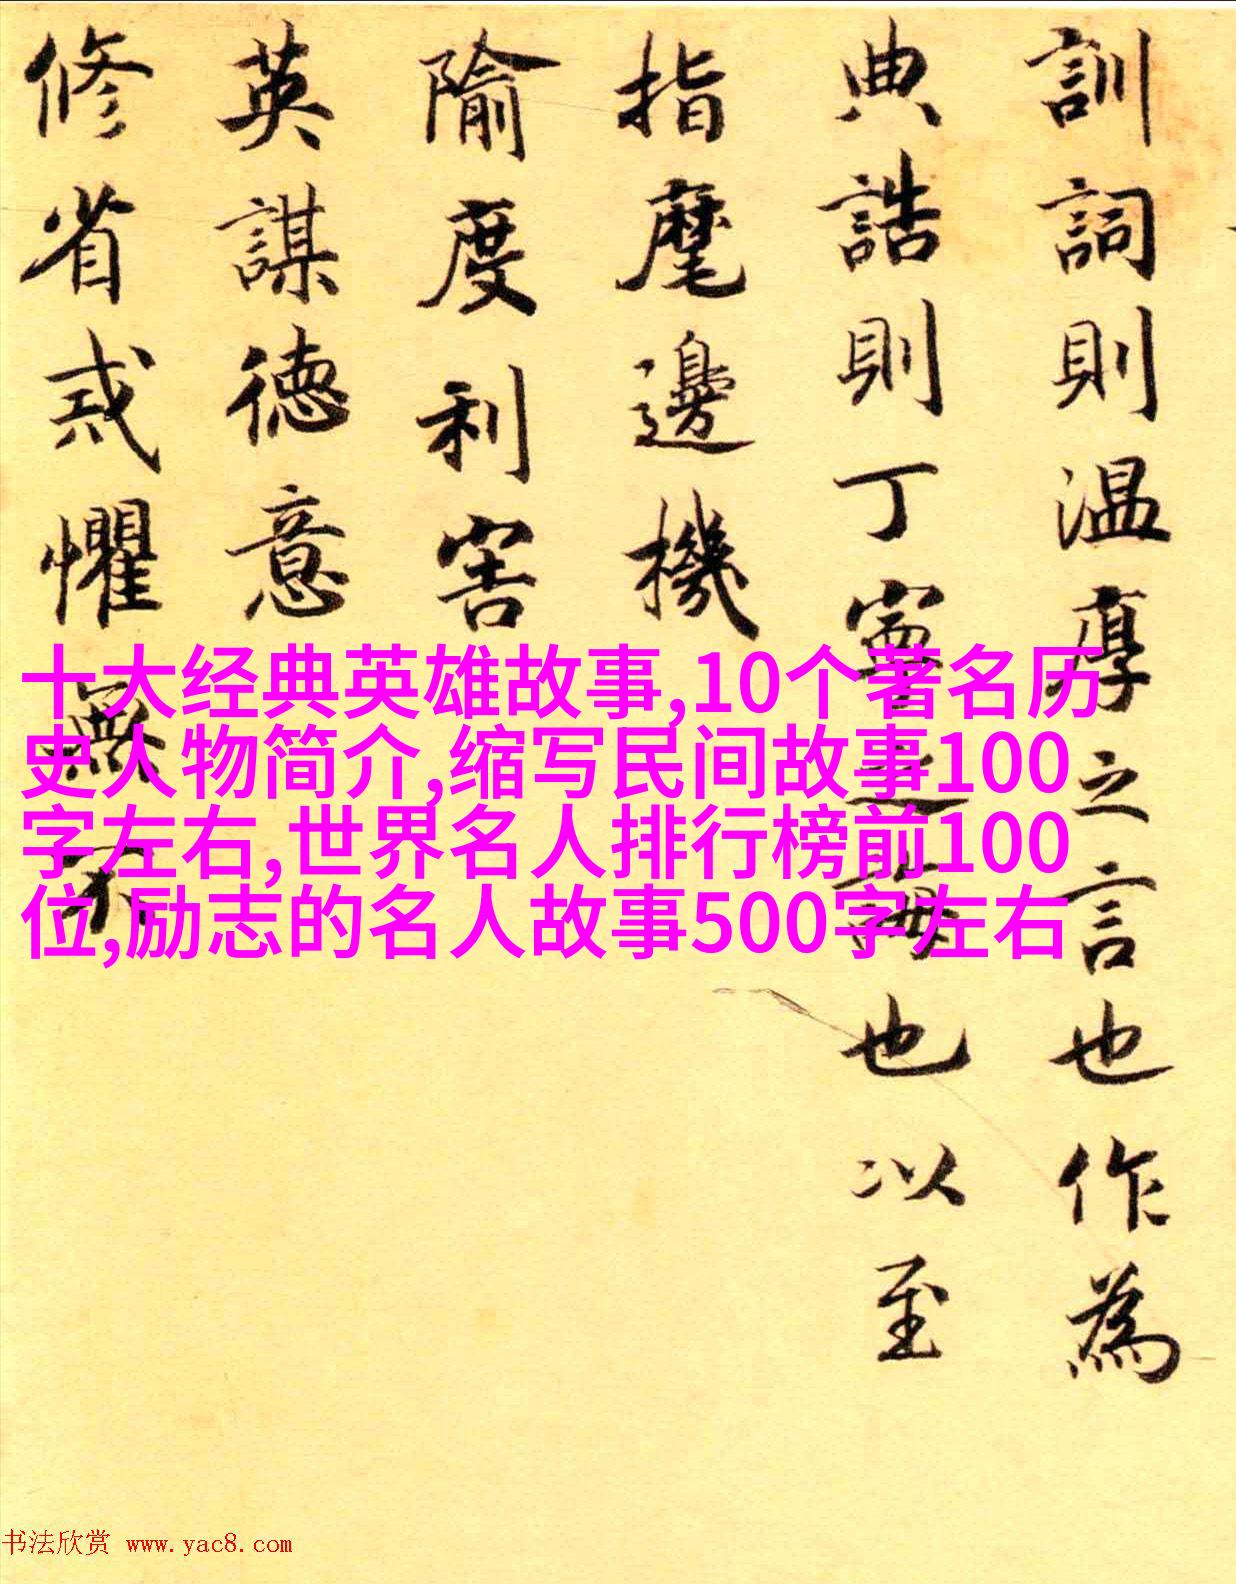 訓詞則温厚之言也作為
典誥則丁寧之誨也以至
指麾邊機
隃度利害
英謀德意
修省戒懼無不
十大经典英雄故事,10个著名历
史人物简介,缩写民间故事100
字左右,世界名人排行榜前100
位,励志的名人故事500字左右
书法欣赏 www.yac8.com